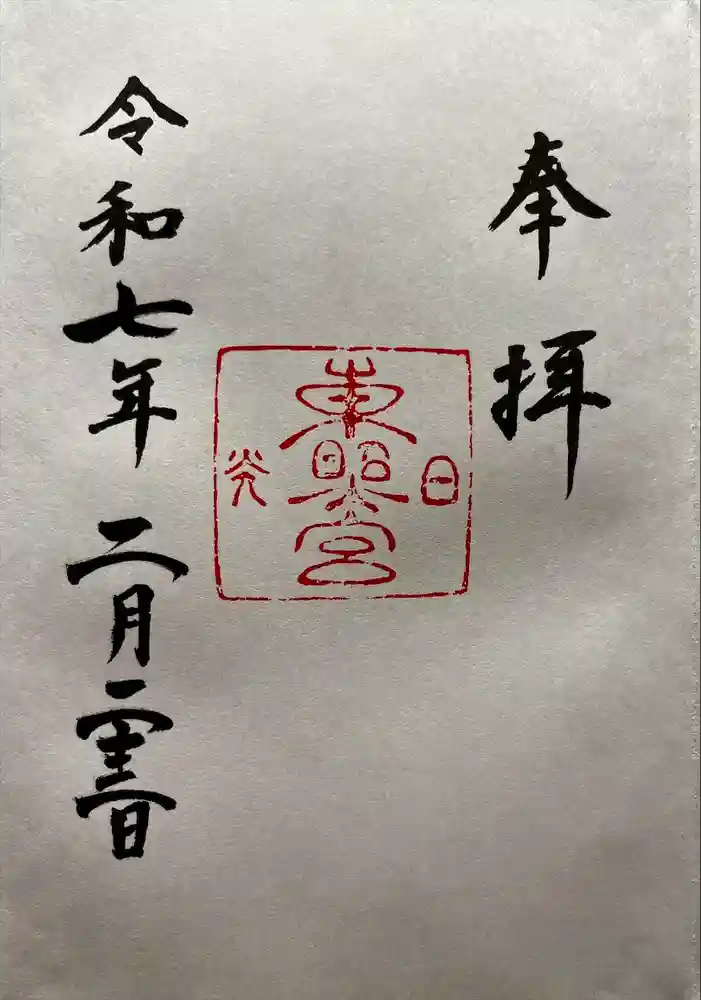 奉拝
日
東照宮
光
令和七年 二月二十三日